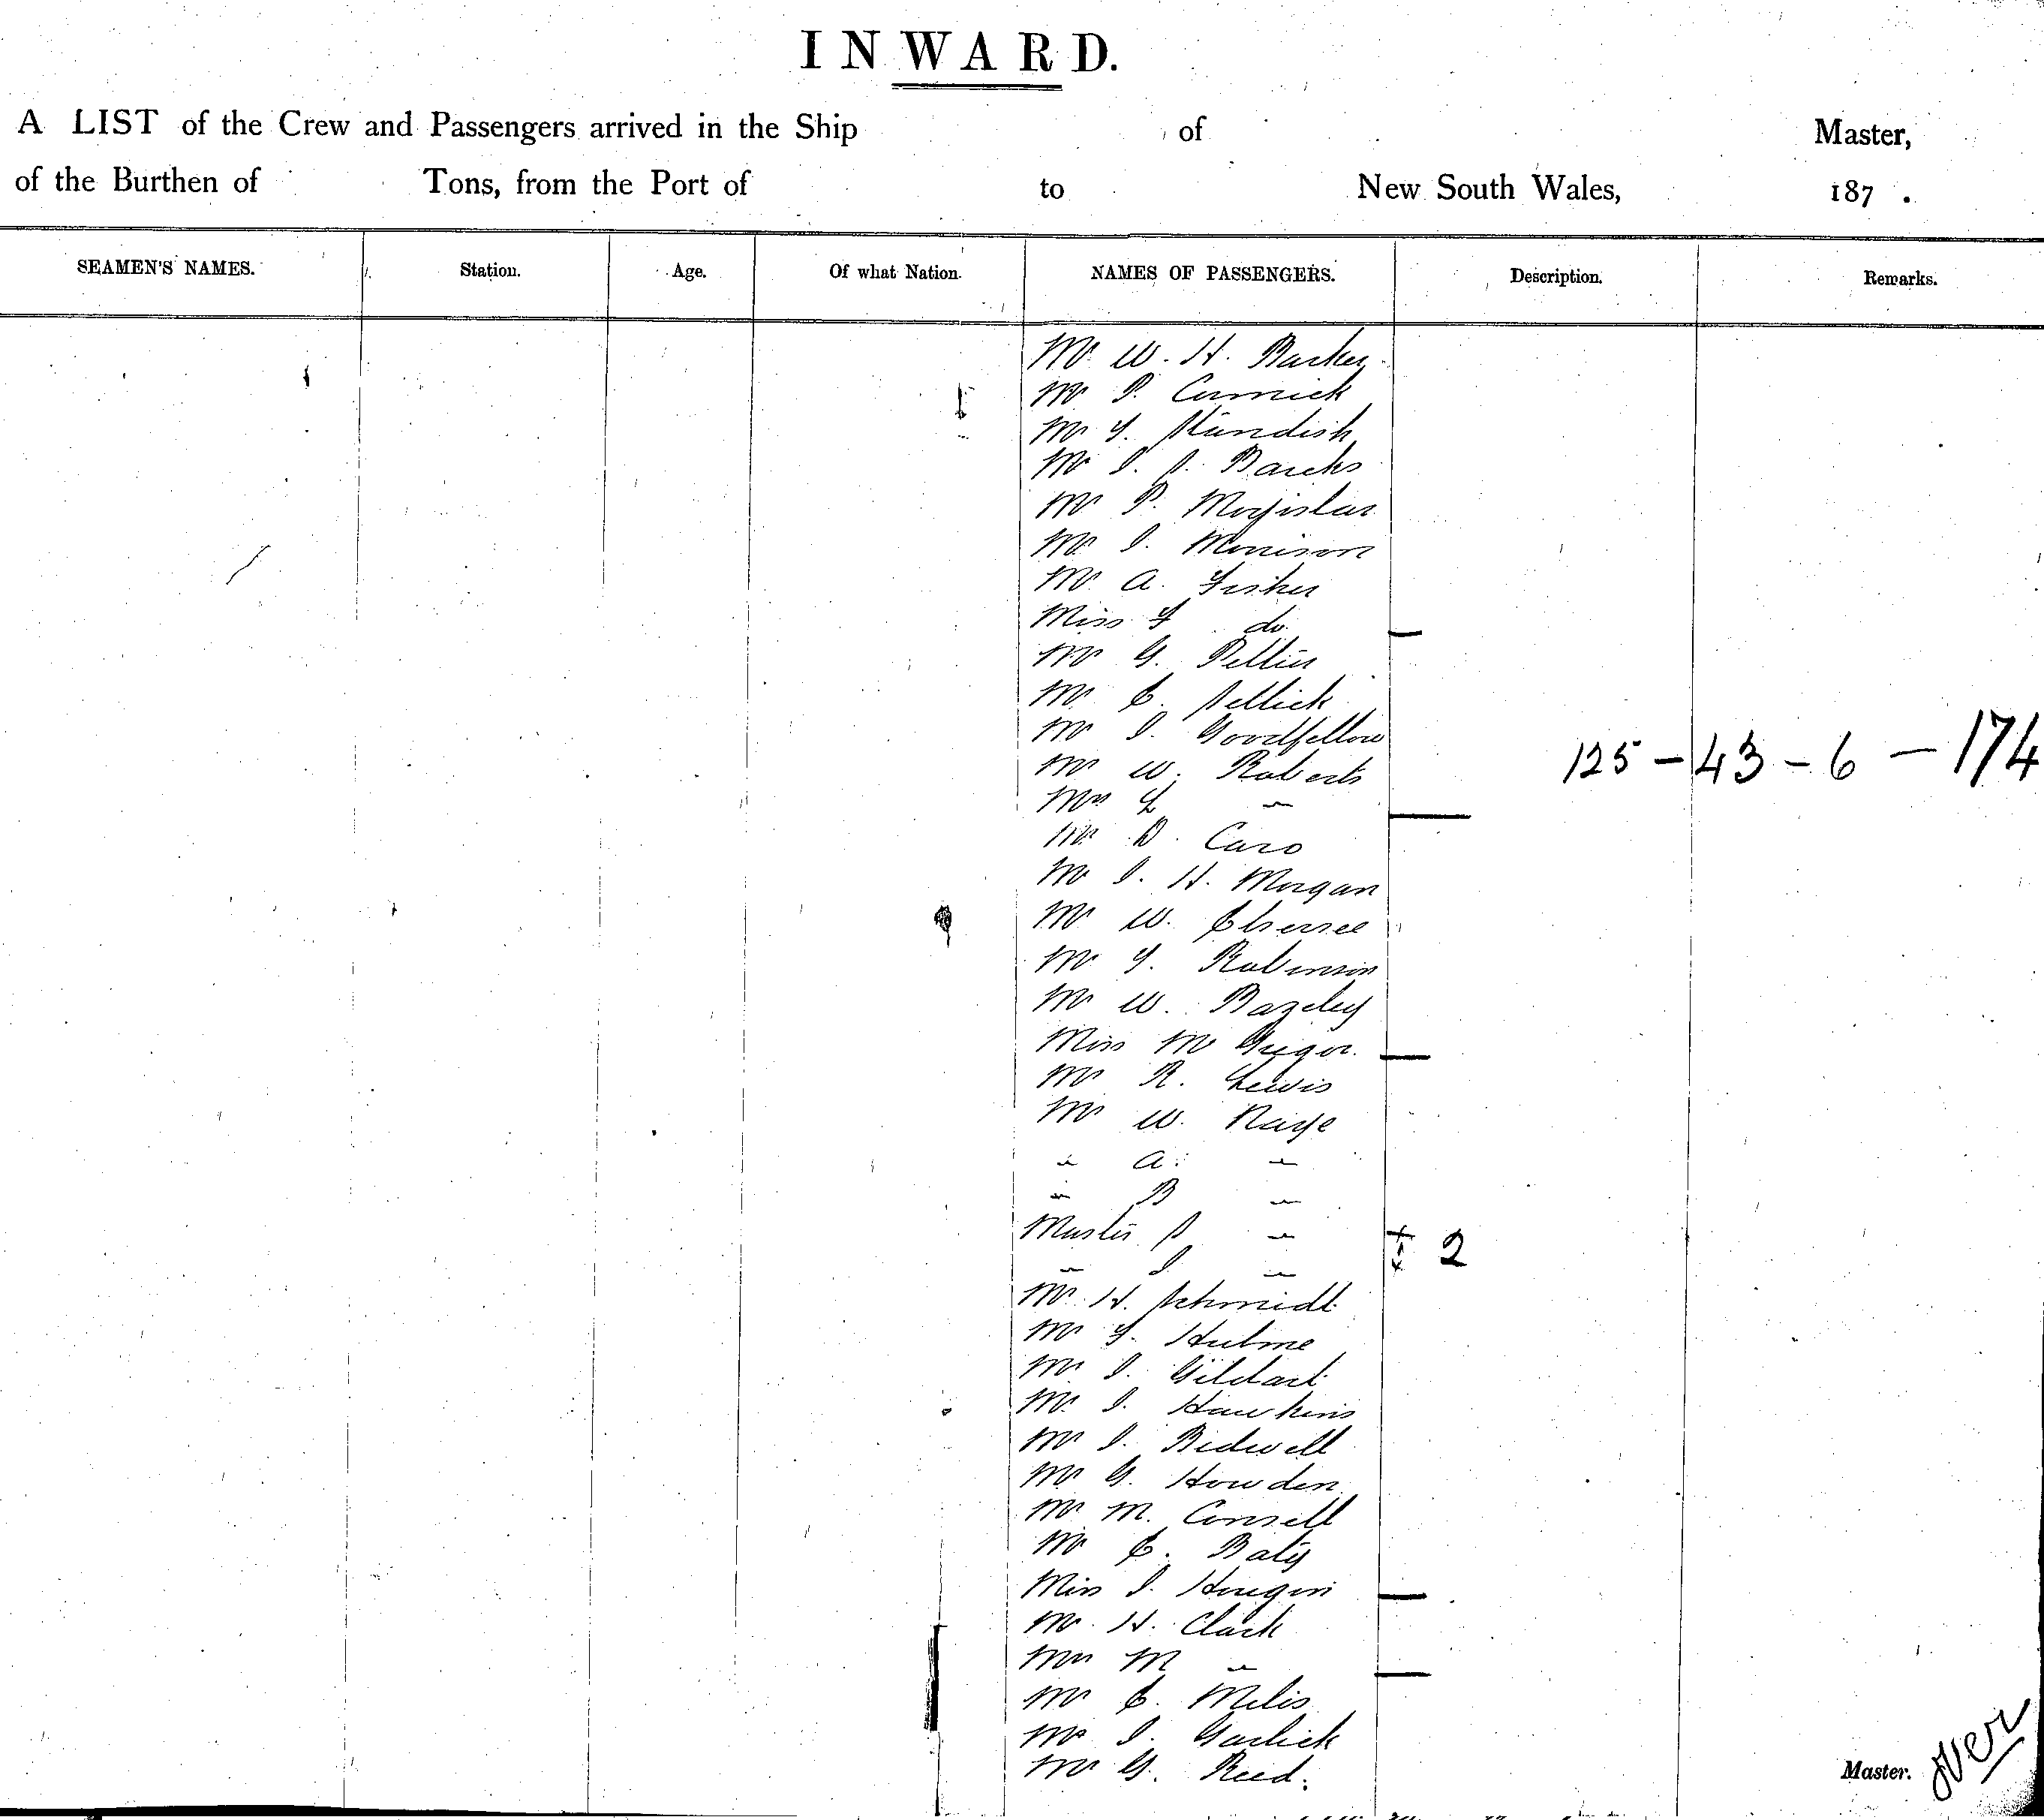 INWARD.
A LIST of the Crew and Passengers arrived in the Ship of Master,
of the Burthen of Tons, from the Port of to New South Wales, 187 .
SEAMEN'S NAMES. Station. Age. Of what Nation. NAMES OF PASSENGERS. Description. Remarks.
Mr W. H. Barker
Mr P. Cormick
Mr Y. Standish
Mr J. S. Banks
Mr P.
Mr J. Morrison
Mr A. Fisher
Miss F do
Mr G.
Mr E. Sellick
Mr J. Goodfellow
Mr W. Roberts
125 - 43 - 6 - 174
Mrs L "
Mr D. Caro
Mr J. H. Morgan
Mr W.
Mr Y. Robinson
Mr W. Bazeley
Miss
Mr R. Lewis
Mr W. Kaye
" A. "
" B "
Master S " 2
" J "
Mr H. Schmidt
Mr Y. Hulme
Mr J. Gildart
Mr J. Hawkins
Mr J. Bidwell
Mr G. Howden
Mr M. Consell
Mr E. Baty
Miss J.
Mr H. Clark
Mrs M "
Mr E. Milis
Mr J. Garlick
Mr G. Reed.
Master. Over